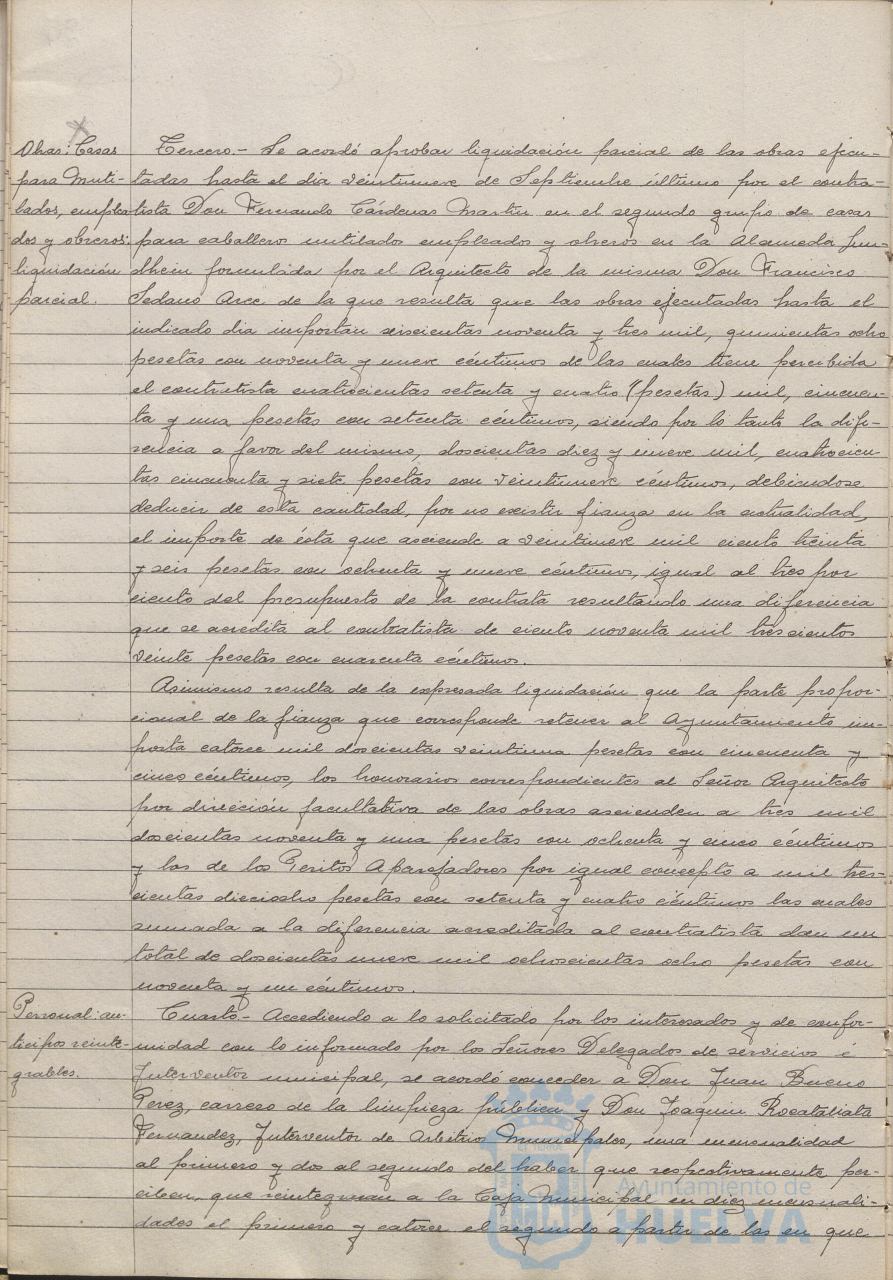 Obras: Casas
para Muti-
lados, emplea
dos y obreros:
liquidación
parcial.
Tercero.- Se acordó aprobar liquidación parcial de las obras ejecu-
tadas hasta el dia veintinueve de Septiembre último por el contra-
tista Don Fernando Cárdenas Martin en el segundo grupo de casas
para caballeros mutilados empleados y obreros en la Alameda Sun-
dhein formulida por el Arquitecto de la misma Don Francisco
Sedano Arce de la que resulta que las obras ejecutadas hasta el
indicado dia importan seiscientas noventa y tres mil, quinientas ocho
pesetas con noventa y nueve céntimos de las cuales tiene percibida
el contratista cuatrocientas setenta y cuatro (pesetas) mil, cincuen-
ta y una pesetas con setenta céntimos, siendo por lo tanto la dife-
rencia a favor del mismo, doscientas diez y nueve mil, cuatrocien
tas cincuenta y siete pesetas con veintinueve céntimos, debiendose
deducir de esta cantidad, por no existir fianza en la actualidad,
el importe de ésta que asciende a veintinueve mil ciento treinta
y seis pesetas con ochenta y nueve céntimos, igual al tres por
ciento del presupuesto de la contrata resultando una diferencia
que se acredita al contratista de ciento noventa mil trescientos
veinte pesetas con cuarenta céntimos.
Asimismo resulta de la expresada liquidación que la parte propor-
cional de la fianza que corresponde retener al Ayuntamiento im-
porta catorce mil doscientas veintiuna pesetas con cincuenta y
cinco céntimos, los honorarios correspondientes al Señor Arquitecto
por dirección facultativa de las obras ascienden a tres mil
doscientas noventa y una pesetas con ochenta y cinco céntimos
y las de los Peritos Aparejadores por igual concepto a mil tres-
cientas dieciocho pesetas con setenta y cuatro céntimos las cuales
sumada a la diferencia acreditada al contratista dan un
total de doscientas nueve mil ochoscientas ocho pesetas con
noventa y un céntimos.
Personal: an-
ticipos reinte-
grables.
Cuarto.- Accediendo a lo solicitado por los interesados y de confor-
midad con lo informado por los Señores Delegados de servicios é
Interventor municipal, se acordó conceder a Don Juan Bueno
Perez, carrero de la limpieza pública y Don Joaquin Rocatallata
Fernandez, Interventor de Arbitrio Municipales, una mensualidad
al primero y dos al segundo del haber que respectivamente per-
ciben, que reintegraran a la Caja Municipal en diez mensuali-
dades el primero y catorce el segundo a partir de las en que
Ayuntamiento de
HUELVA